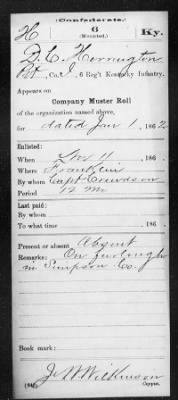 (Confederate.)
H 6 Ky.
(Mounted.)
D. C. Herrington
Pvt, Co. , 6 Reg't Kentucky Infantry.
Appears on
Company Muster Roll
of the organization named above,
for dated Jan 1, 1862.
Enlisted:
When Nov 11, 186 .
Where Franklin
By whom Capt Crewdson
Period 12 Mo
Last paid:
By whom
To what time , 186 .
Present or absent Absent
Remarks: On furlough
in Simpson Co.
Book mark:
J. W. Wilkinson
Copyist.